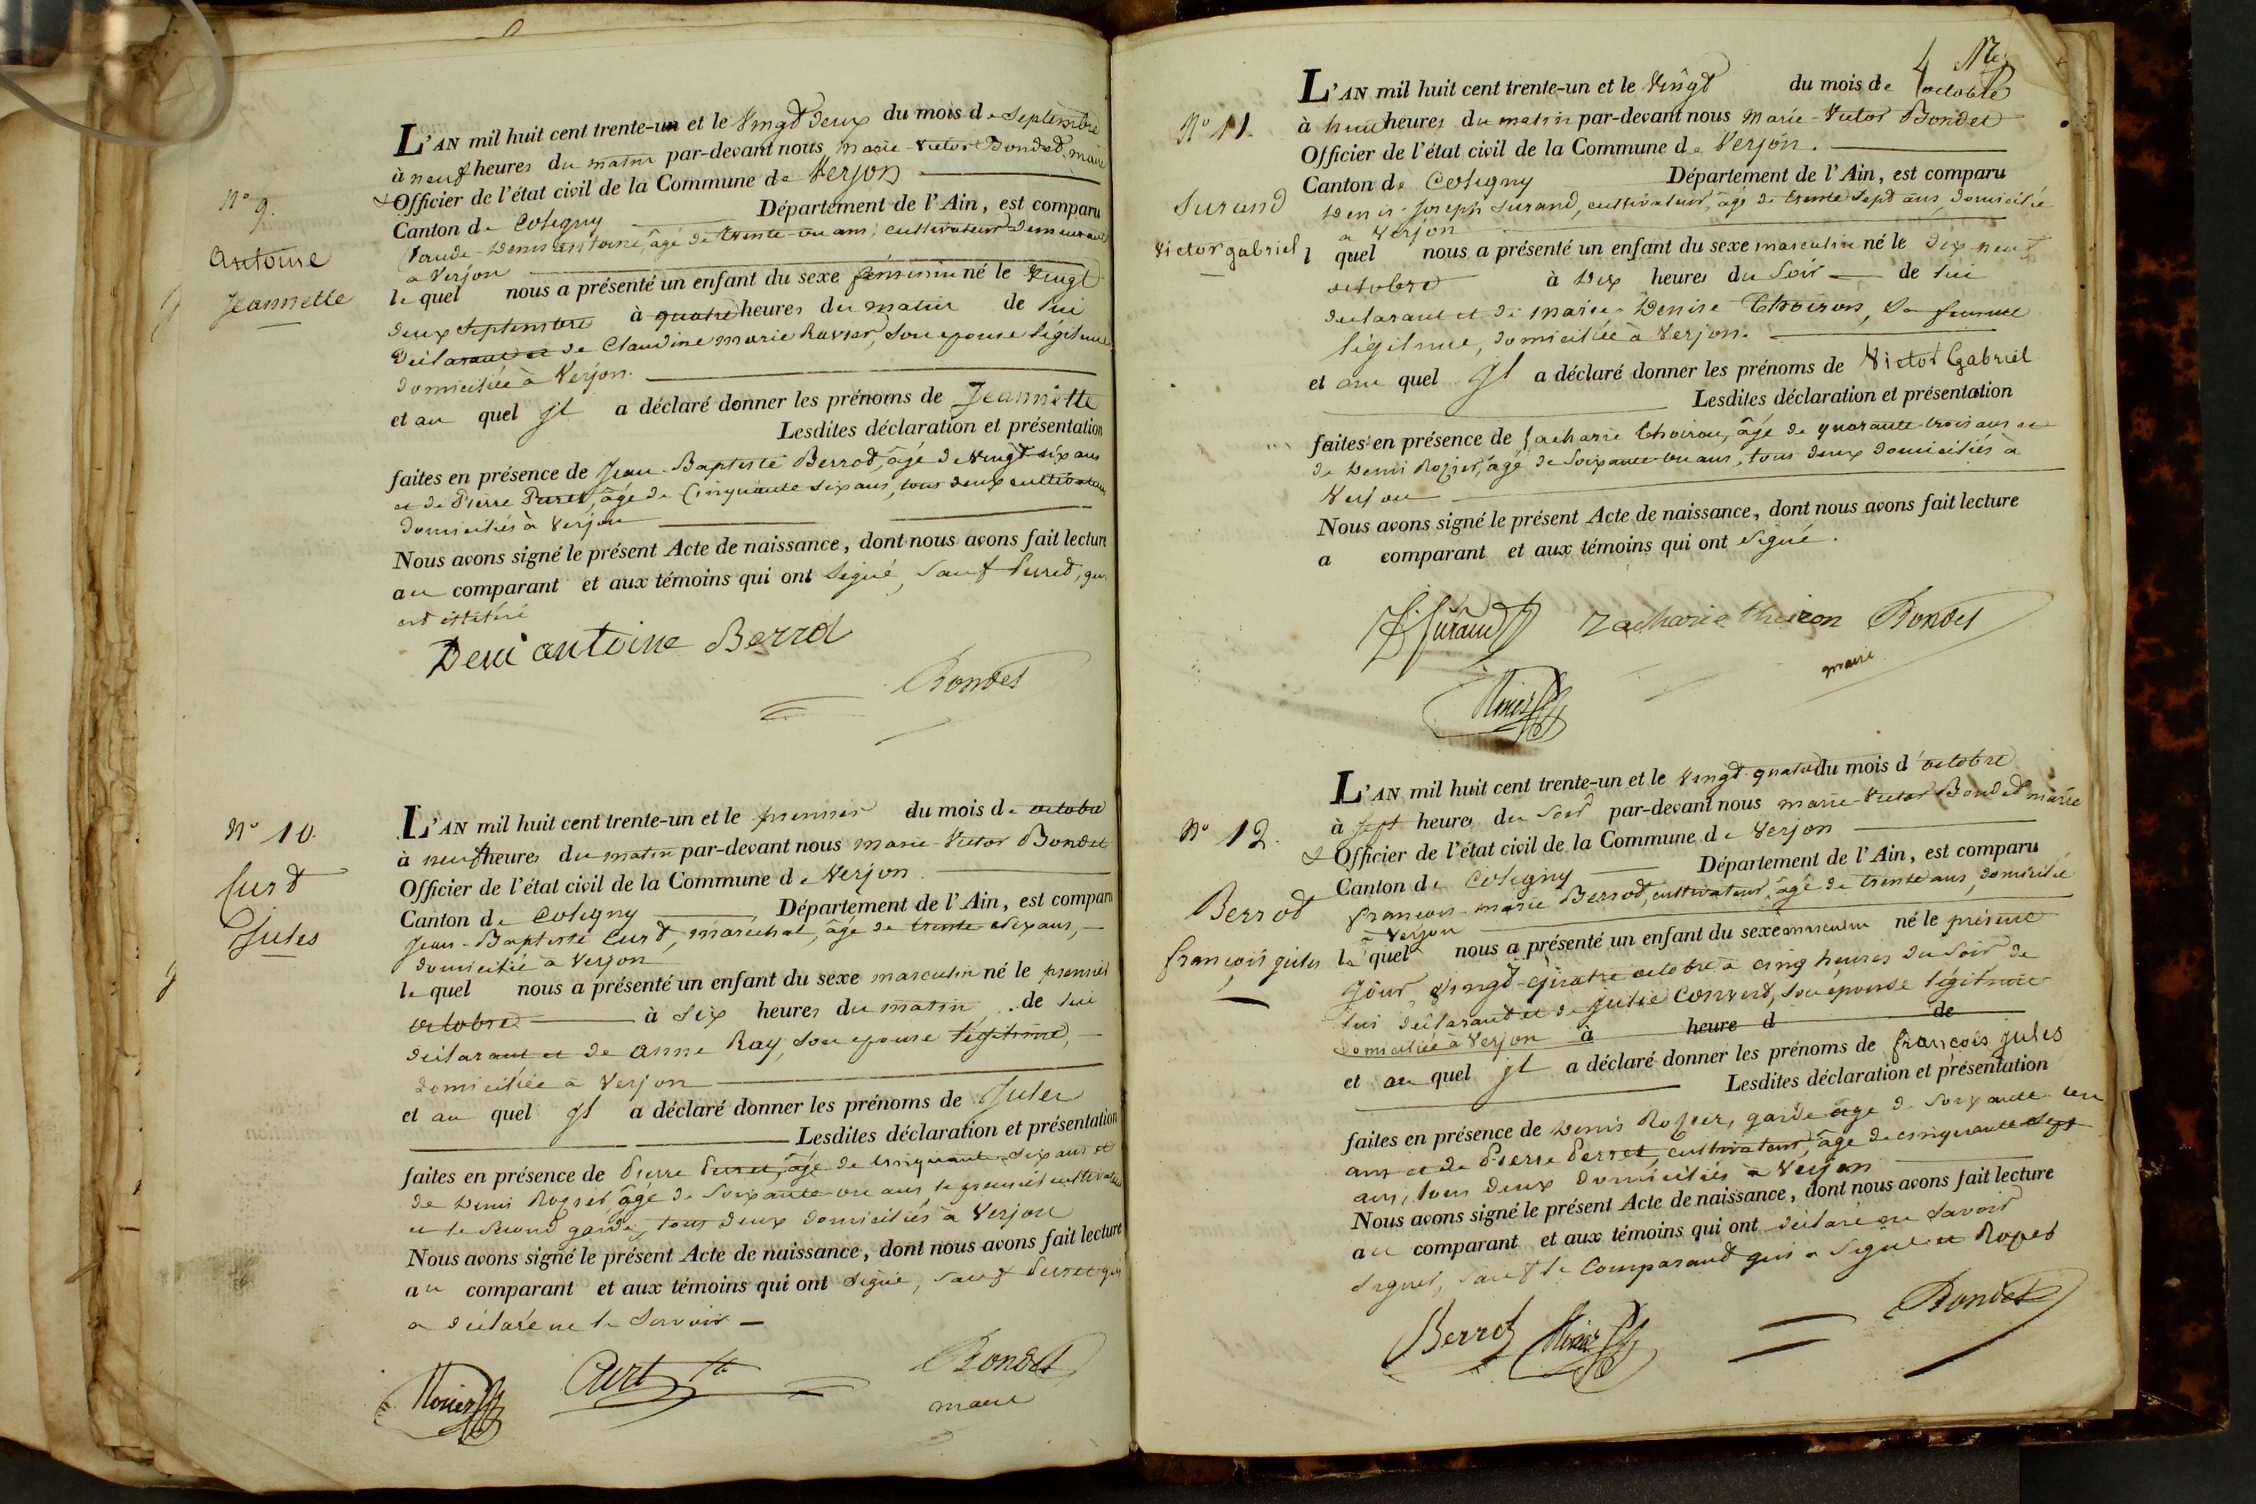 N° 9.
Antoine
Jeannette
L'AN mil huit cent trente-un et le Vingt deux du mois de Septembre
à neuf heures du matin par-devant nous Marie-Victor Bondet, maire
& Officier de l'état civil de la Commune de Verjon
Canton de Coligny Département de l'Ain, est comparu
Denis antoine, âgé de trente un ans, cultivateur demeurant
à Verjon
le quel nous a présenté un enfant du sexe féminin né le Vingt
deux Septembre à quatre heures du matin de lui
Déclarant et de Claudine marie Ravier, son epouse légitime
domiciliée à Verjon.
et au quel jl a déclaré donner les prénoms de Jeannette
Lesdites déclaration et présentation
faites en présence de Jean-Baptiste Berrod, âgé de vingt six ans
et de Pierre Perret, âgé de Cinquante six ans, tous deux cultivateurs
domiciliés à Verjon
Nous avons signé le présent Acte de naissance, dont nous avons fait lecture
au comparant et aux témoins qui ont signé, sauf Perret, qui
est illétéré
Deni antoine Berrod
Bondet
N° 10.
Curt
Jules
L'AN mil huit cent trente-un et le premier du mois de octobre
à neuf heures du matin par-devant nous marie-Victor Bondet
Officier de l'état civil de la Commune de Verjon
Canton de Coligny Département de l'Ain, est comparu
Jean-Baptiste Curt, maréchal, âgé de trente six ans,
domicilié à Verjon
le quel nous a présenté un enfant du sexe masculin né le premier
octobre à six heures du matin de lui
déclarant et de anne Ray, son epouse légitime,
domiciliée à Verjon
et au quel jl a déclaré donner les prénoms de Jules
Lesdites déclaration et présentation
faites en présence de Pierre Perret, âgé de cinquante six ans et
de Denis Rozier âgé de soixante un ans, le premier cultivateur
et le second garde, tous deux domiciliés à Verjon
Nous avons signé le présent Acte de naissance, dont nous avons fait lecture
au comparant et aux témoins qui ont signé, sauf Perret qui
a déclaré ne le savoir
Rozier Curt Bondet
maire
N° 11.
Surand
Victor gabriel
L'AN mil huit cent trente-un et le Vingt du mois de octobre
à huit heures du matin par-devant nous Marie-Victor Bondet
Officier de l'état civil de la Commune de Verjon.
Canton de Coligny Département de l'Ain, est comparu
Denis-Joseph Surand, cultivateur, âgé de trente sept ans, domicilié
à Verjon
l quel nous a présenté un enfant du sexe masculin né le dix neuf
octobre à Dix heures du Soir de lui
declarant et de marie-Denise Thoiron, sa femme
légitime, domiciliée à Verjon.
et au quel jl a déclaré donner les prénoms de Victor Gabriel
Lesdites déclaration et présentation
faites en présence de Zacharie Thoiron, âgé de quarante trois ans et
de Denis Rozier, âgé de soixante un ans, tous deux domiciliés à
Verjon
Nous avons signé le présent Acte de naissance, dont nous avons fait lecture
a comparant et aux témoins qui ont signé.
Surand Zacharie thoiron Bondet
maire
Rozier
N° 12.
Berrod
françois jules
L'AN mil huit cent trente-un et le vingt-quatre du mois d'octobre
à sept heures du soir par-devant nous marie-Victor Bondet maire
& Officier de l'état civil de la Commune de Verjon
Canton de Coligny Département de l'Ain, est comparu
françois-marie Berrod, cultivateur, âgé de trente ans, domicilié
à Verjon
le quel nous a présenté un enfant du sexe masculin né le présent
jour vingt-quatre octobre à cinq heures du soir de
lui déclarant et de Julie Convert, son épouse légitime
domiciliée à Verjon à heure d de
et au quel jl a déclaré donner les prénoms de françois jules
Lesdites déclaration et présentation
faites en présence de Denis Rozier, garde âgé de soixante un
ans et de Pierre Perret, cultivateur, âgé de cinquante sept
ans, tous deux domiciliés à Verjon
Nous avons signé le présent Acte de naissance, dont nous avons fait lecture
au comparant et aux témoins qui ont déclaré ne savoir
signer, sauf le Comparant qui a signé et Rozier
Berrod Rozier Bondet